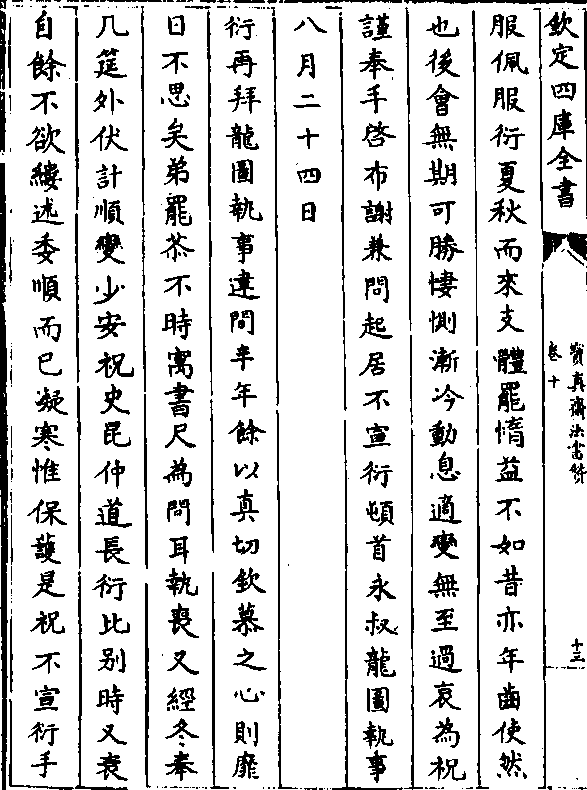 欽定四庫全書
寶真齋法書贊
卷十
十三
服佩服衍夏秋而來支體罷惰益不如昔亦年齒使然
也後會無期可勝悽惻漸冷動息適變無至過哀為祝
謹奉手啓布謝兼問起居不宣衍頓首永叔龍圖執事
八月二十四日
衍再拜龍圖執事違間半年餘以真切欽慕之心則靡
日不思矣弟罷苶不時寓書尺為問耳執喪又經冬奉
几筵外伏計順變少安祝史昆仲道長衍比别時又衰
自餘不欲縷述委順而已凝寒惟保護是祝不宣衍手